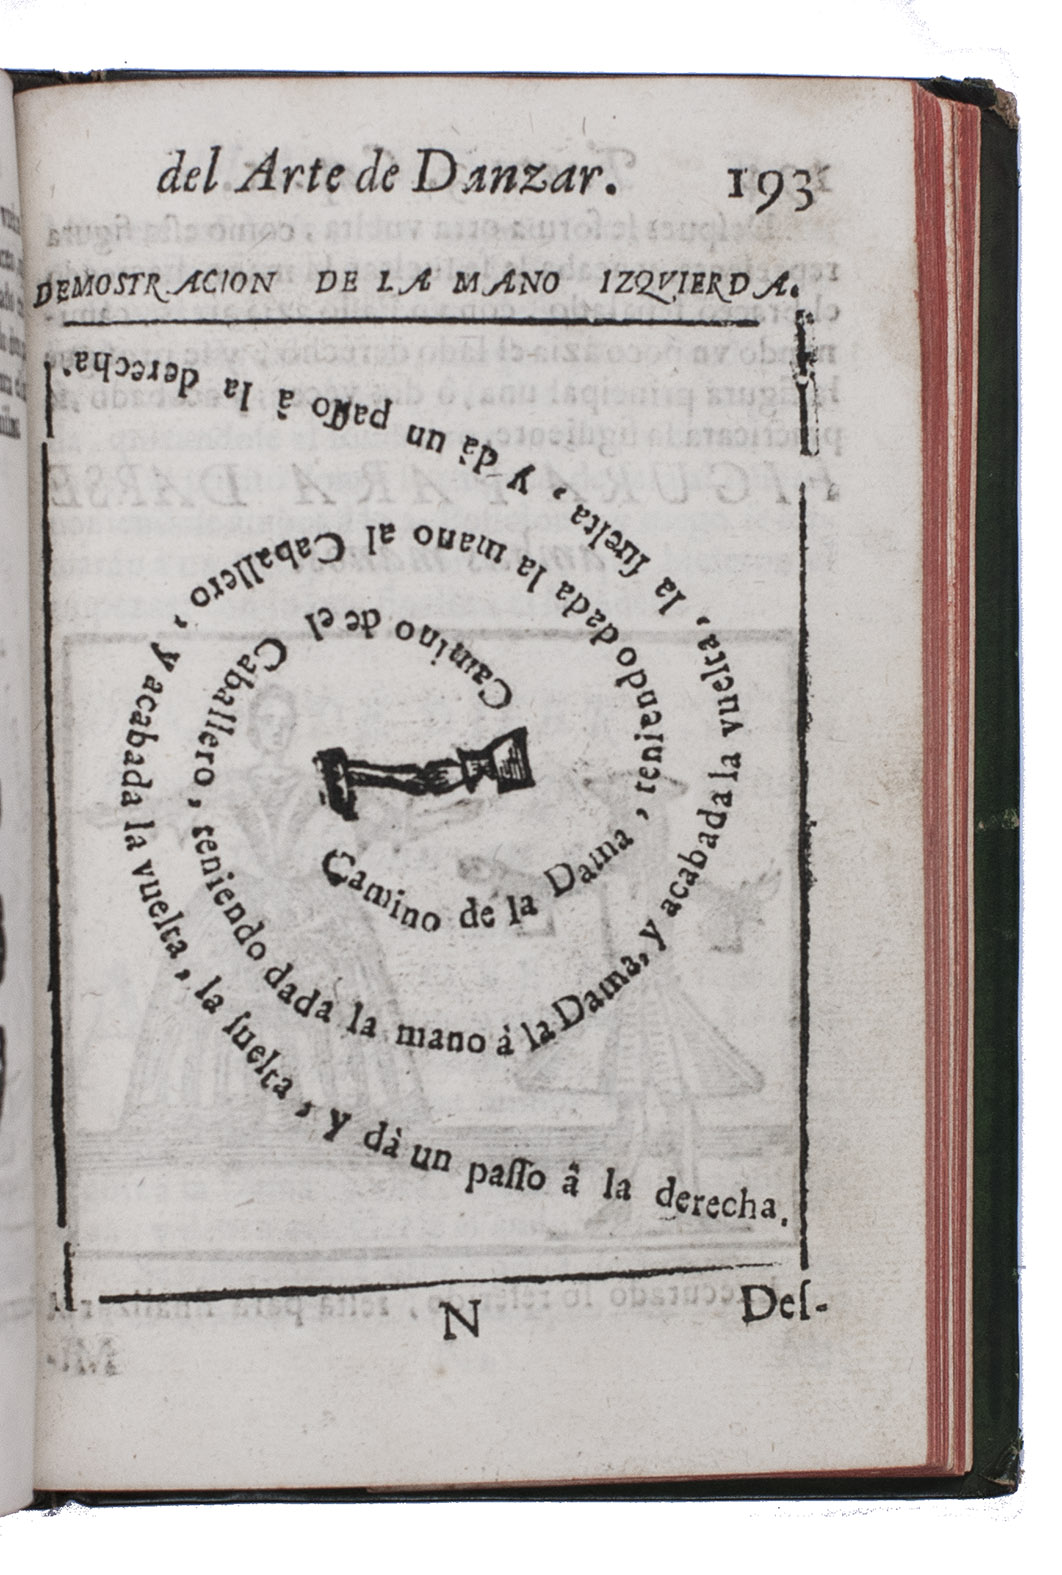 del Arte de Danzar. 193
DEMOSTRACION DE LA MANO IZQVIERDA.
Camino de el Caballero, teniendo dada la mano à la Dama, y acabada la vuelta, la ſuelta, y dà un paſſo à la derecha.
Camino de la Dama, teniendo dada la mano al Caballero, y acabada la vuelta, la ſuelta, y dà un paſſo â la derecha.
N Deſ-